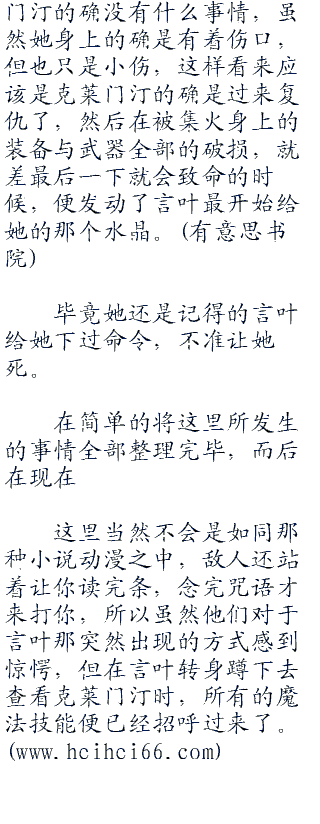 门汀的确没有什么事情，虽
然她身上的确是有着伤口，
但也只是小伤，这样看来应
该是克莱门汀的确是过来复
仇了，然后在被集火身上的
装备与武器全部的破损，就
差最后一下就会致命的时
候，便发动了言叶最开始给
她的那个水晶。(有意思书
院)
毕竟她还是记得的言叶
给她下过命令，不准让她
死。
在简单的将这里所发生
的事情全部整理完毕，而后
在现在
这里当然不会是如同那
种小说动漫之中，敌人还站
着让你读完条，念完咒语才
来打你，所以虽然他们对于
言叶那突然出现的方式感到
惊愕，但在言叶转身蹲下去
查看克莱门汀时，所有的魔
法技能便已经招呼过来了。
(www.hcihci66.com)